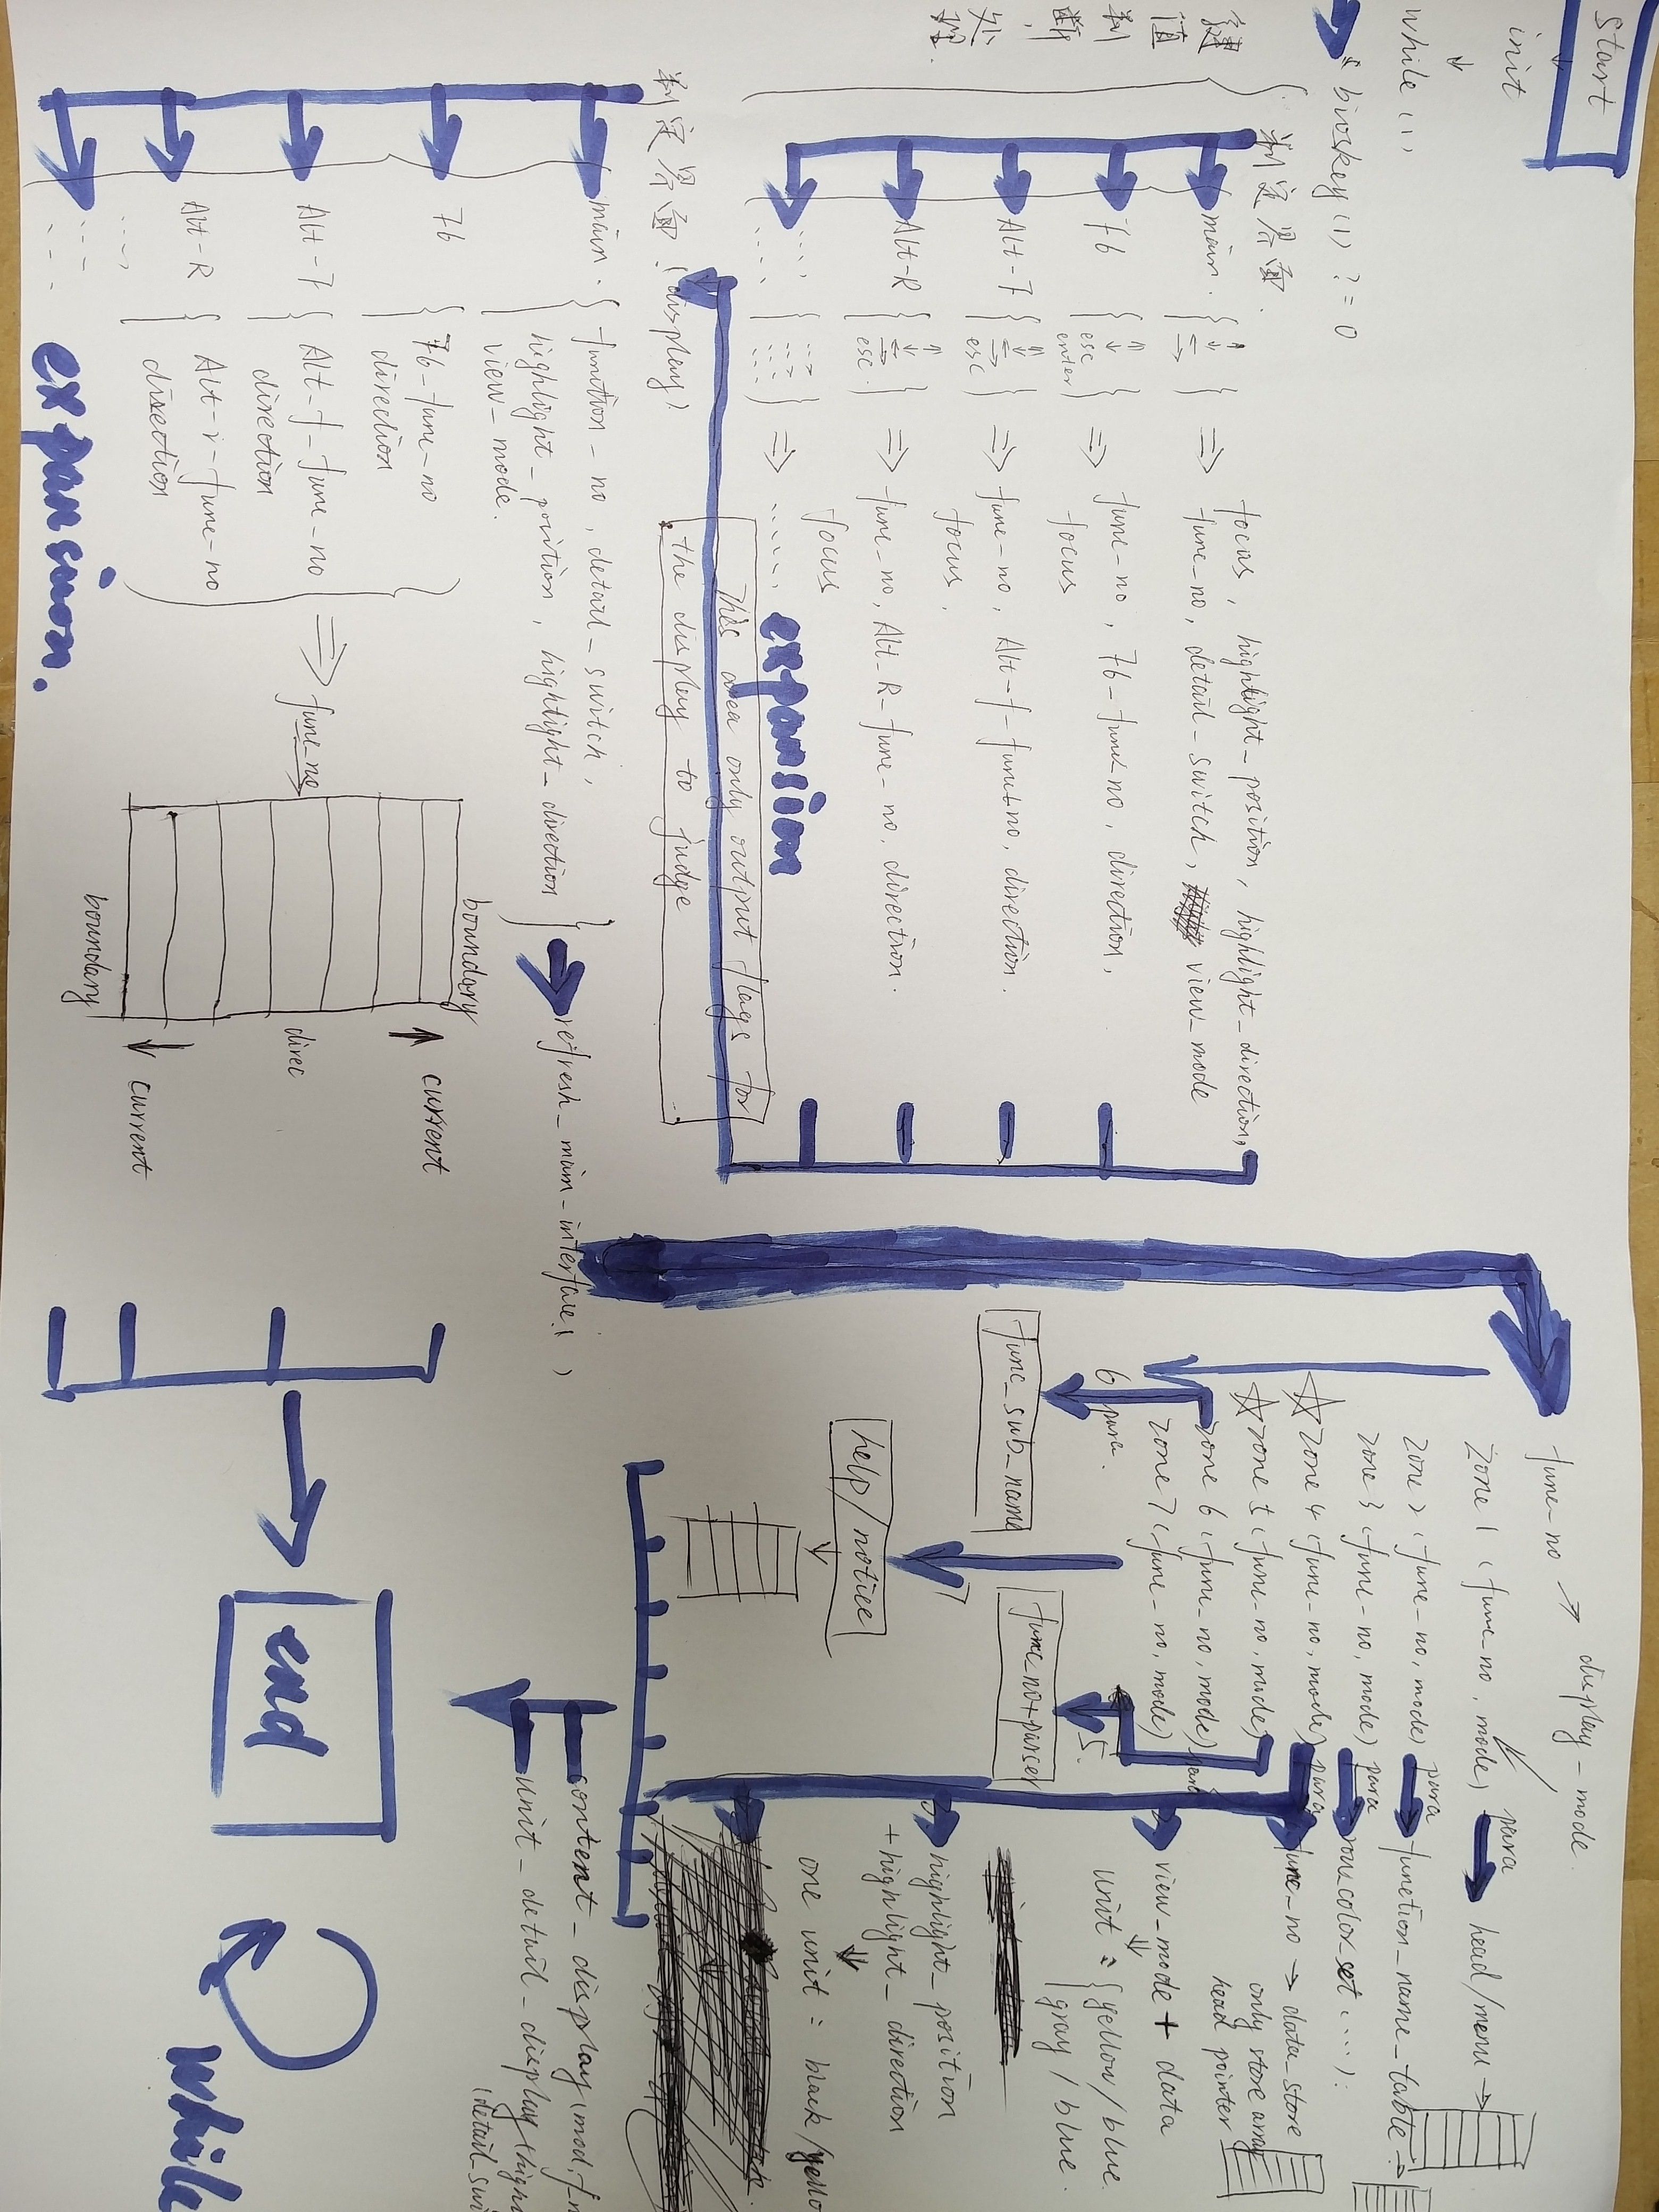 start
init
while (1)
bioskey (1) ? = 0
键值判断,处理.
判定界面.
main.
focus, highlight_position, highlight_direction,
func_no, detail_switch, view_mode
F6
esc
enter
func_no, F6_func_no, direction,
focus
Alt-F
esc
func_no, Alt_f_func_no, direction.
focus.
Alt-R
esc
func_no, Alt_R_func_no, direction.
focus
expansion
This area only output flags for
the display to judge
判定界面 (display)
main.
function_no, detail_switch,
highlight_position, highlight_direction
view_mode.
refresh_main_interface( )
F6
F6_func_no
direction
Alt-F
Alt_f_func_no
direction
Alt-R
Alt-r-func-no
direction
expansion.
func_no
boundary
current
direc
current
boundary
func_no
display_mode
zone 1 (func_no, mode)
para
head/menu
zone 2 (func_no, mode)
para
function_name_table
zone 3 (func_no, mode)
para
row_color_set (....);
zone 4 (func_no, mode)
para
func_no → data_store
only store array
head pointer
zone 5 (func_no, mode)
zone 6 (func_no, mode)
para
zone 7 (func_no, mode)
view_mode + data
unit = yellow/blue.
gray/blue.
6 para.
5.
func_sub_name
func_no+parser
7
help/notice
highlight_position
+highlight_direction
one unit = black/yello
content_display (mod, f_n
unit_detail_display (highl
(detail_swi
end
while